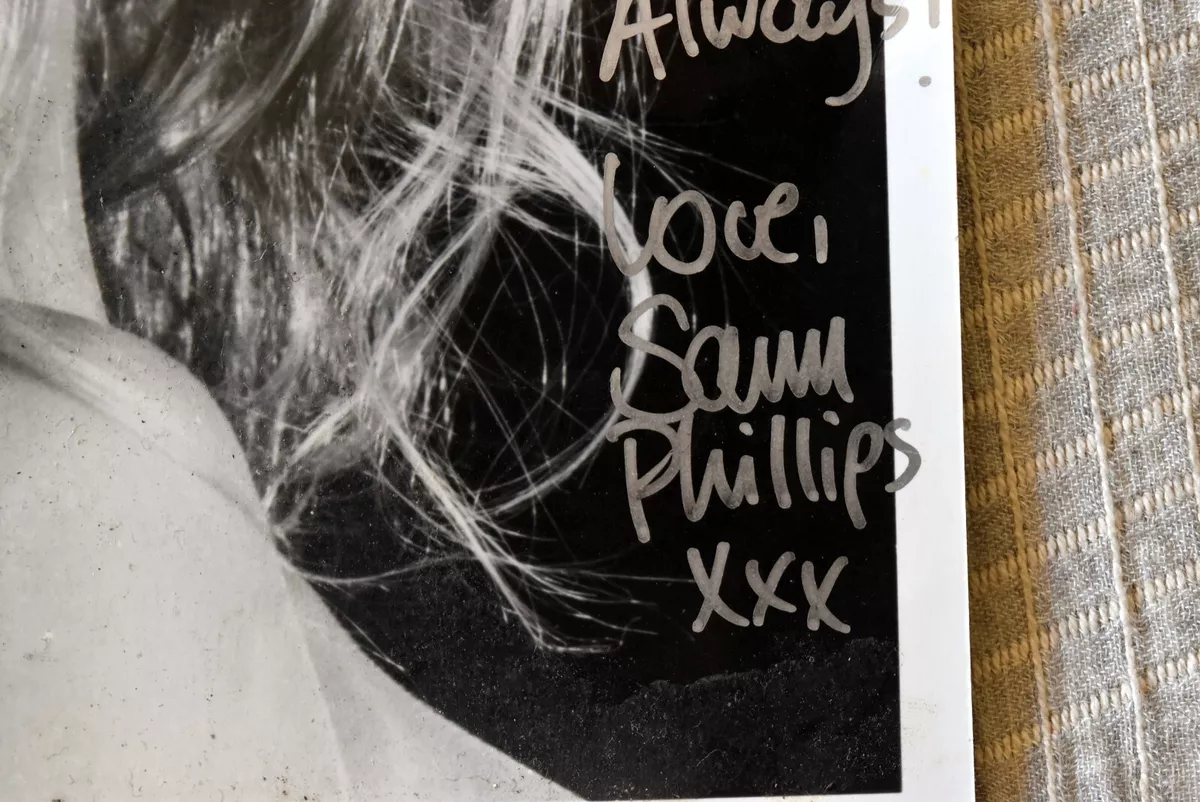 Always!
Love,
Sam
Phillips
xxx